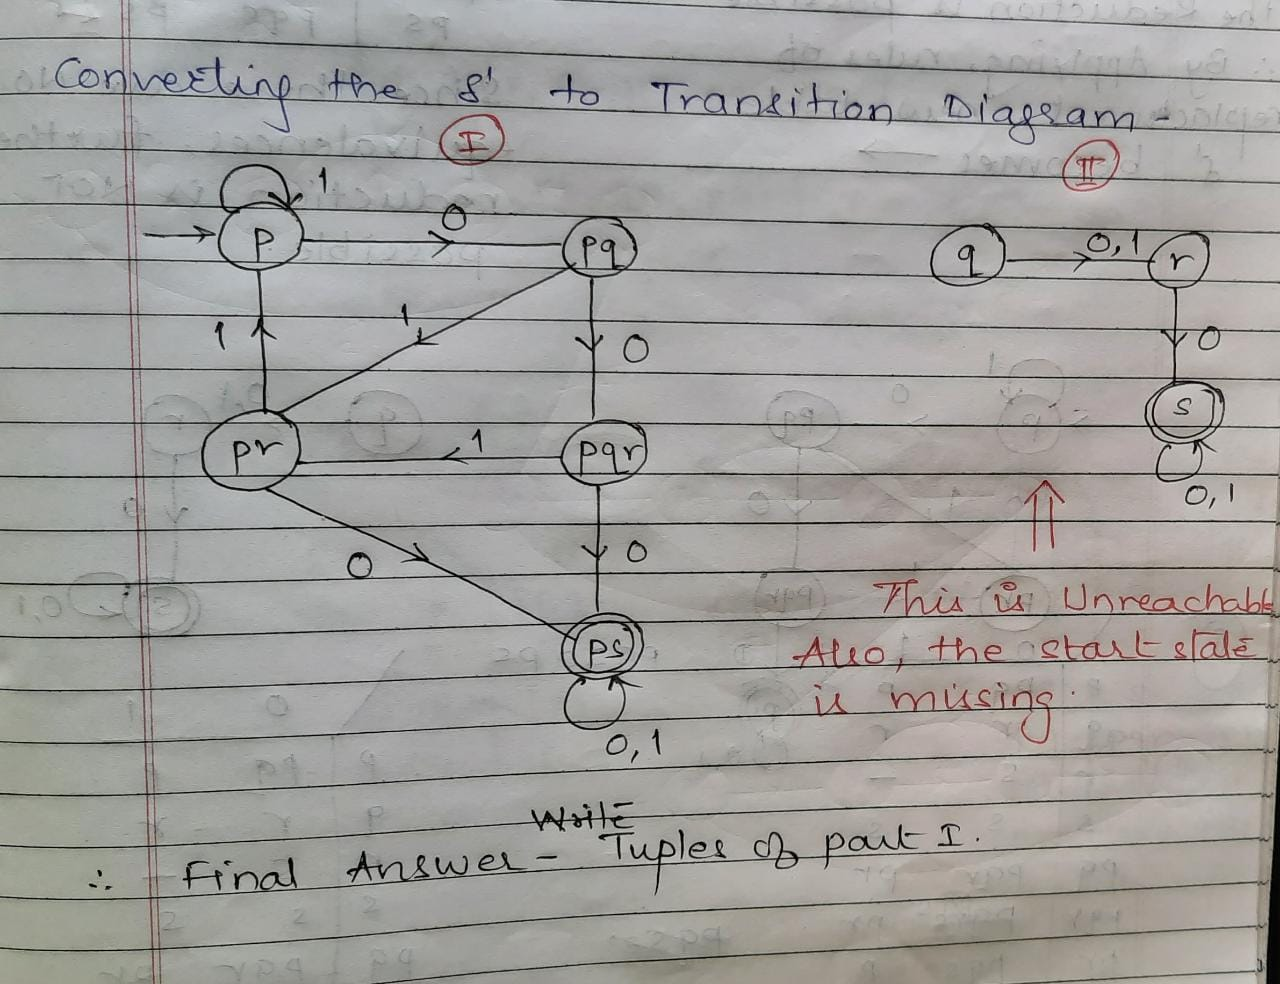 Converting the δ' to Transition Diagram -
I
II
1
0
p
pq
q
0,1
r
1
1
0
0
pr
1
pqr
s
0,1
0
0
This is Unreachable
Also, the start state
is missing.
ps
0,1
Write
∴ Final Answer - Tuples of part I.